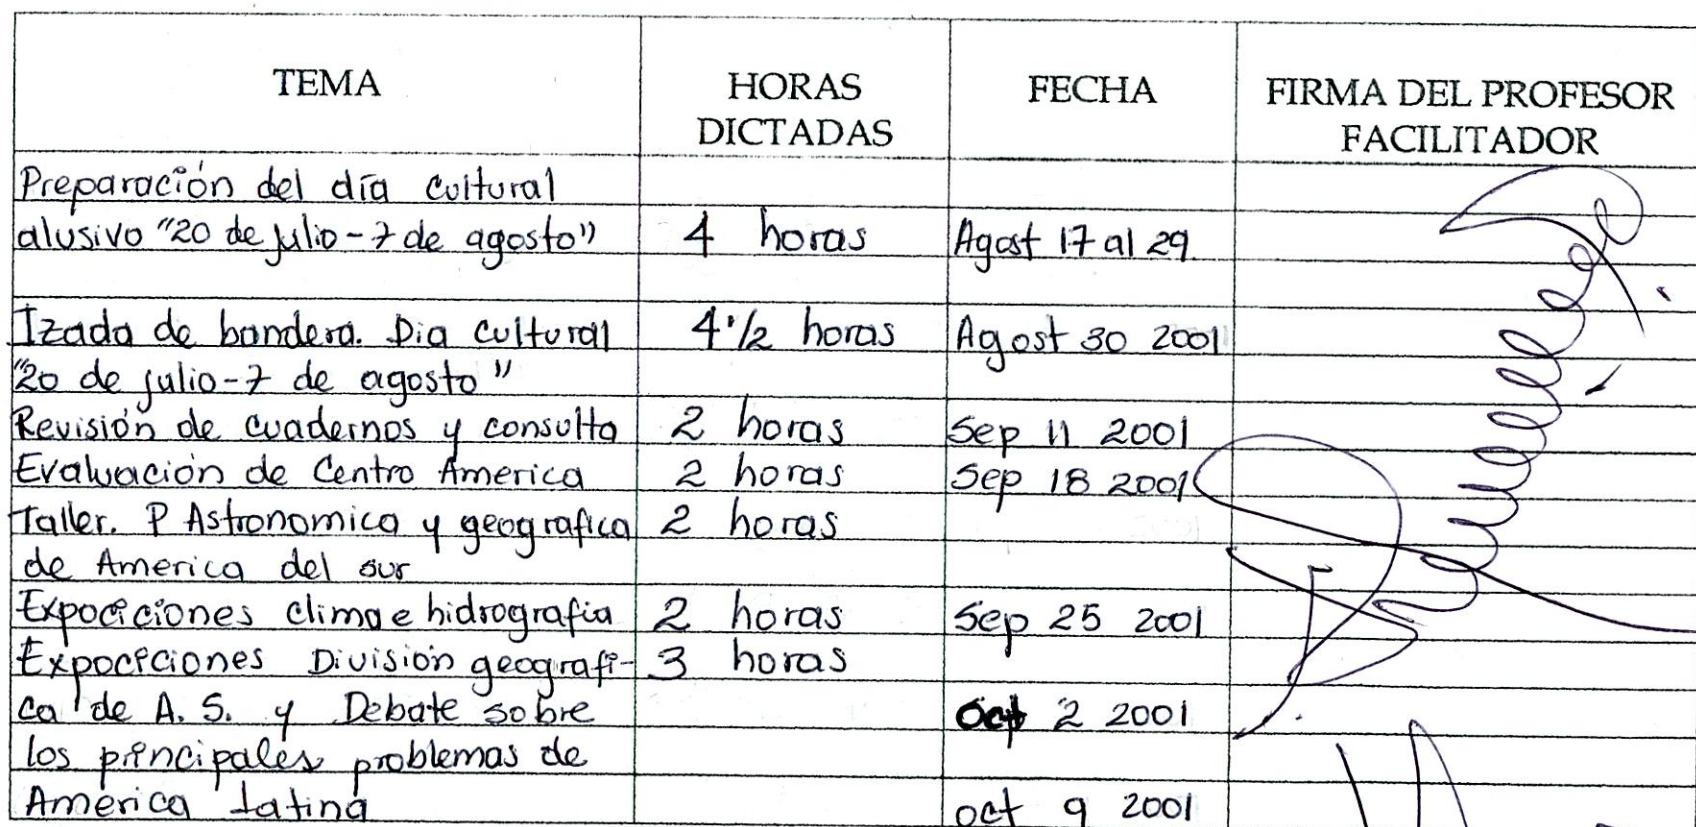 TEMA HORAS DICTADAS FECHA FIRMA DEL PROFESOR FACILITADOR
Preparación del día cultural
alusivo "20 de julio-7 de agosto" 4 horas Agost 17 al 29
Izada de bandera. Dia cultural 4 1/2 horas Agost 30 2001
"20 de julio-7 de agosto"
Revisión de cuadernos y consulta 2 horas Sep 11 2001
Evaluación de Centro America 2 horas Sep 18 2001
Taller. P Astronomica y geografica 2 horas
de America del sur
Expociciones clima e hidrografia 2 horas Sep 25 2001
Expociciones División geografi- 3 horas
ca de A. S. y Debate sobre oct 2 2001
los principales problemas de
América Latina oct 9 2001